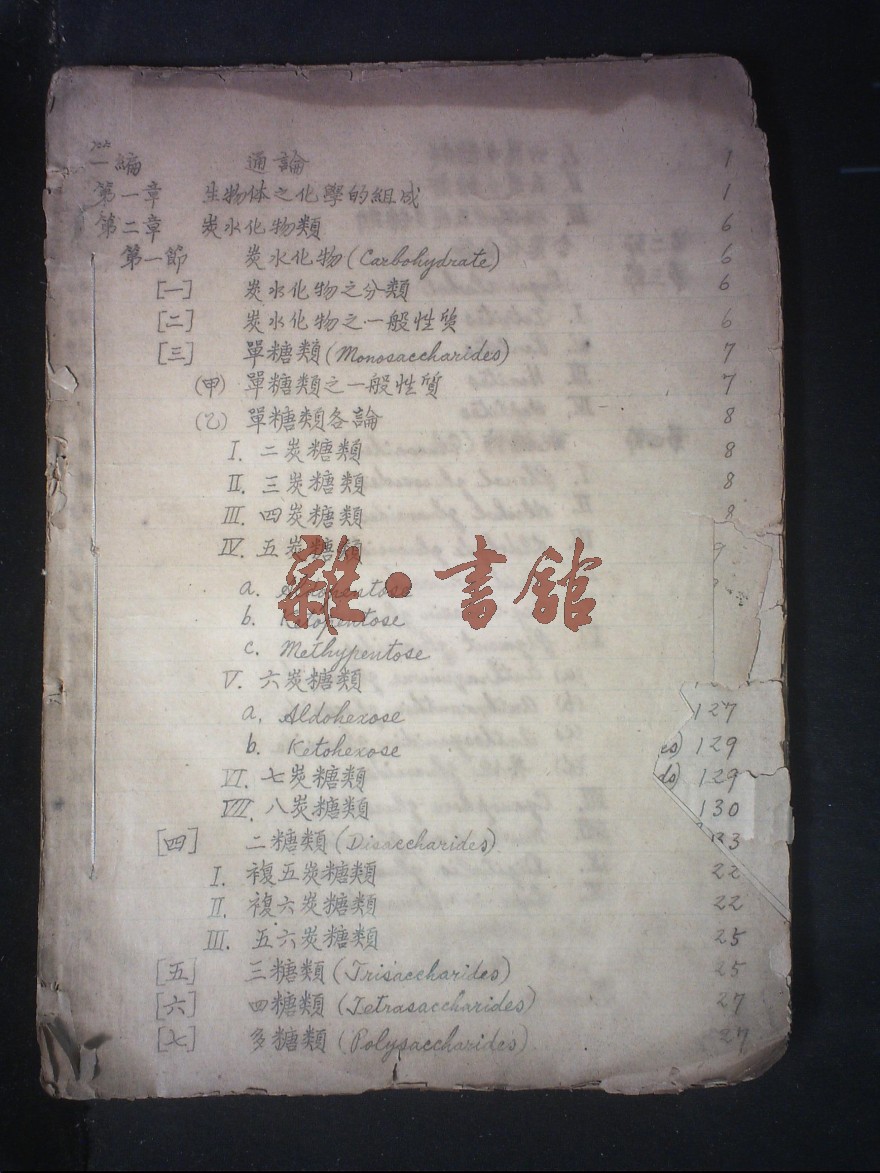 第一編 通論 1
第一章 生物体之化學的組成 1
第二章 炭水化物類 6
第一節 炭水化物(Carbohydrate) 6
[一] 炭水化物之分類 6
[二] 炭水化物之一般性质 6
[三] 單糖類(Monosaccharides) 7
(甲) 單糖類之一般性质 7
(乙) 單糖類各論 8
I. 二炭糖類 8
II. 三炭糖類 8
III. 四炭糖類 8
IV. 五炭糖類 9
a. Aldopentose
b. Ketopentose
c. Methypentose
V. 六炭糖類
a. Aldohexose 127
b. Ketohexose es) 129
VI. 七炭糖類 ds) 129
VII. 八炭糖類 130
[四] 二糖類(Disaccharides) 133
I. 複五炭糖類 22
II. 複六炭糖類 22
III. 五六炭糖類 25
[五] 三糖類(Trisaccharides) 25
[六] 四糖類(Tetrasaccharides) 27
[七] 多糖類(Polysaccharides) 27
雜·書館